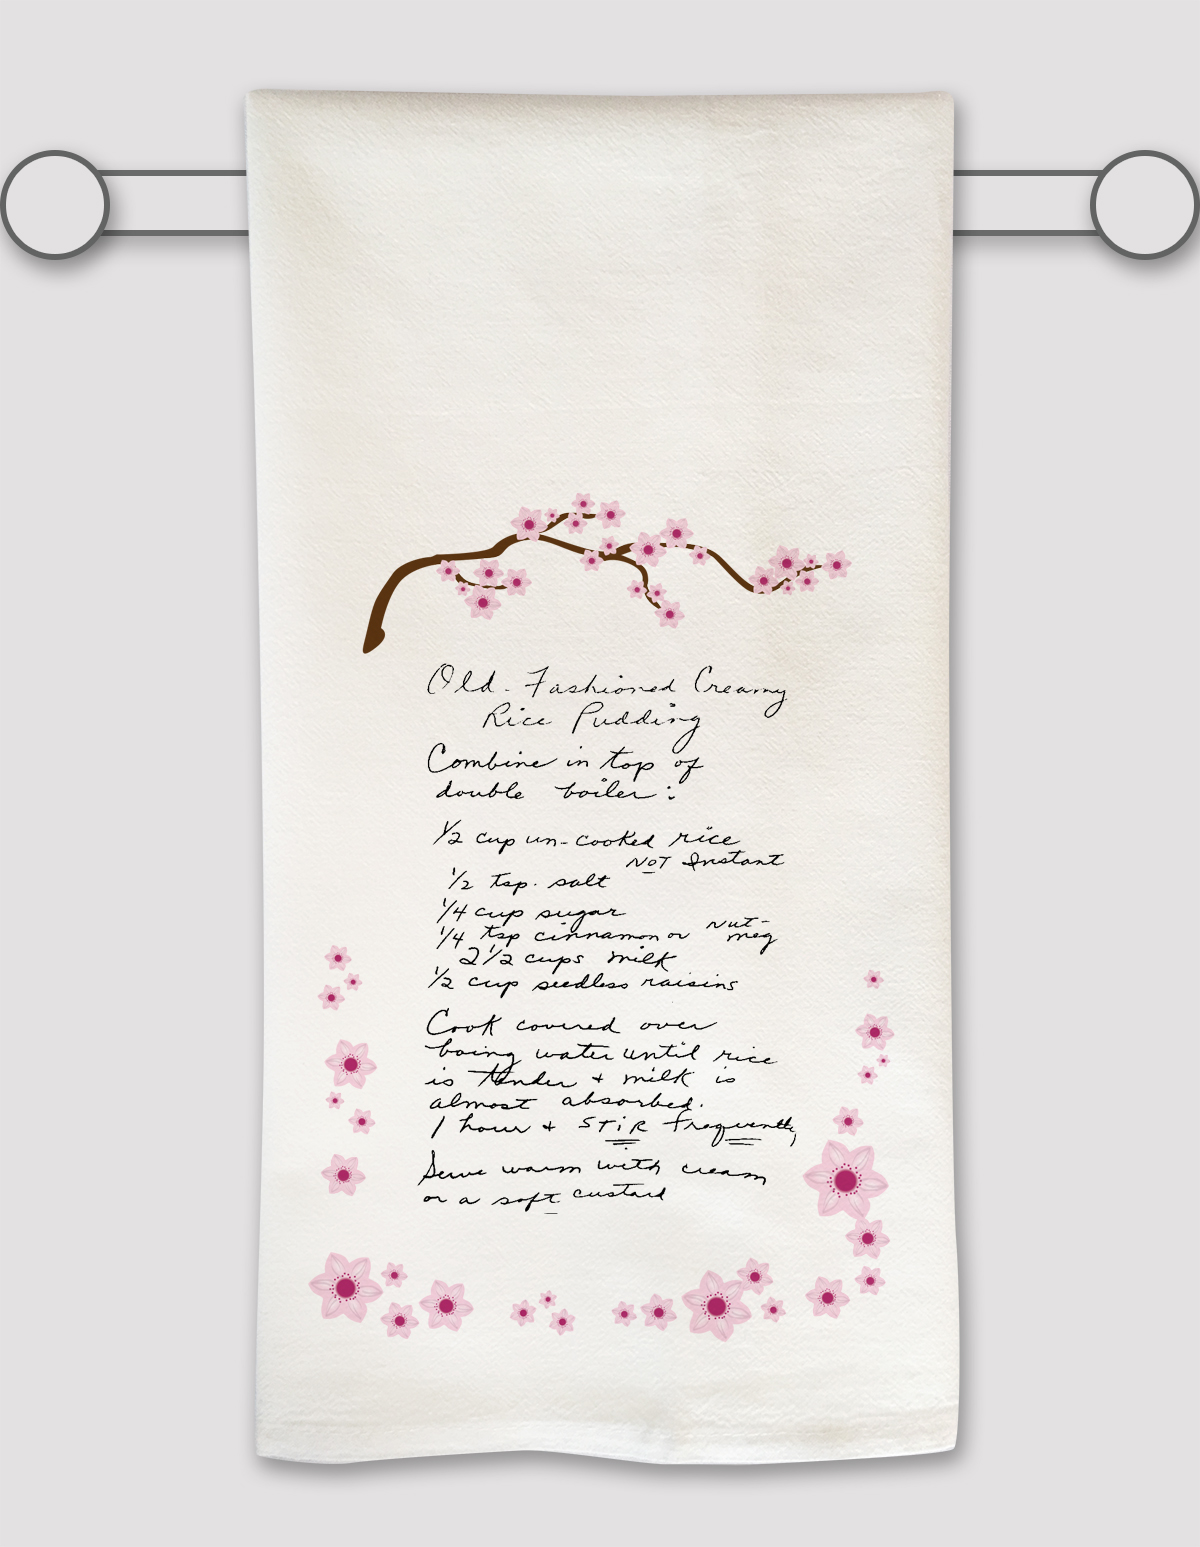 Old-Fashioned Creamy
Rice Pudding
Combine in top of
double boiler:
1/2 cup un-cooked rice
NOT Instant
1/2 tsp. salt
1/4 cup sugar
1/4 tsp cinnamon or nut-
meg
2 1/2 cups milk
1/2 cup seedless raisins
Cook covered over
boing water until rice
is tender + milk is
almost absorbed.
1 hour + STIR frequently,
Serve warm with cream
or a soft custard